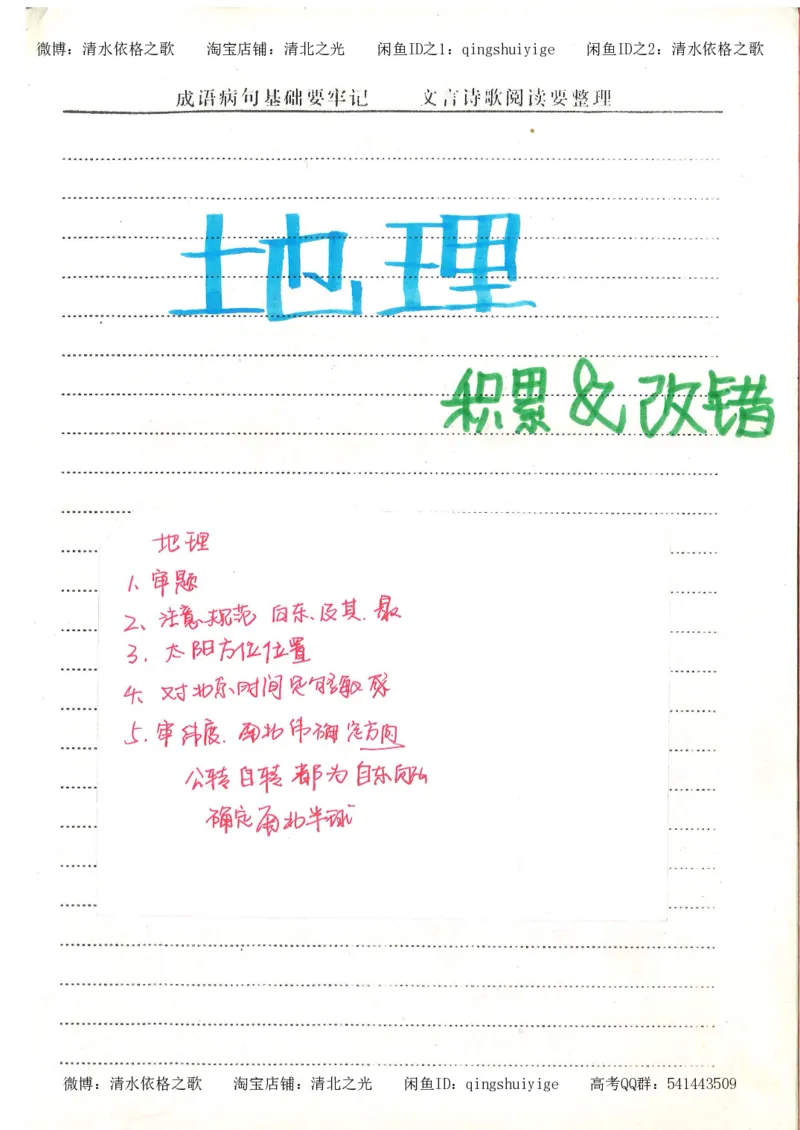 微博：清水依格之歌 淘宝店铺：清北之光 闲鱼ID之1：qingshuiyige 闲鱼ID之2：清水依格之歌
成语病句基础要牢记 文言诗歌阅读要整理
地理
积累&改错
地理
1、审题
2、注意规范 向东、及其、最
3．太阳方位位置
4、对北京时间足够敏感
5．审纬度．南北纬确定方向
公转自转都为自东向
确定南北半球
微博：清水依格之歌 淘宝店铺：清北之光 闲鱼ID：qingshuiyige 高考QQ群：541443509